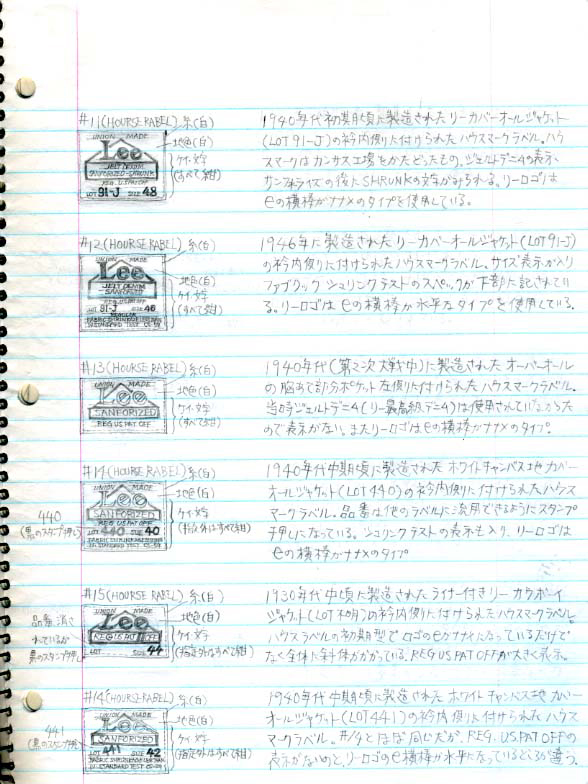 #11(HOURSE RABEL)
糸(白)
UNION MADE
Lee
JELT DENIM
SANFORIZED-SHRUNK
REG. U.S. PAT OFF
LOT 91-J SIZE 48
地色(白)
ケイ・文字
(すべて紺)
1940年代初期頃に製造されたリーカバーオールジャケット
(LOT91-J)の衿内側に付けられたハウスマークラベル。ハウ
スマークはカンサス工場をかたどったもの。ジェルトデニムの表示、
サンフォライズの後にSHRUNKの文字がみられる。リーロゴは
eの横棒がナナメのタイプを使用している。
#12(HOURSE RABEL)
糸(白)
UNION MADE
Lee
JELT DENIM
SANFORIZED
LOT 91-J SIZE 46
地色(白)
ケイ・文字
(すべて紺)
1946年に製造されたリーカバーオールジャケット(LOT91J)
の衿内側に付けられたハウスマークラベル。サイズ表示が入り
ファブリックシュリンクテストのスペックが下部に記されてい
る。リーロゴはeの横棒が水平なタイプを使用している。
#13(HOURSE RABEL)
糸(白)
UNION MADE
Lee
SANFORIZED
REG US PAT OFF
地色(白)
ケイ・文字
(すべて紺)
1940年代(第2次大戦中)に製造されたオーバーオール
の脇あて部分ポケット左側に付けられたハウスマークラベル。
当時ジェルトデニム(リー最高級デニム)は使用されていなかった
ので表示がない。またリーロゴはeの横棒がナナメのタイプ。
440
(黒のスタンプ押し)
#14(HOURSE RABEL)
糸(白)
UNION MADE
Lee
SANFORIZED
REG US PAT OFF
LOT 440 SIZE 40
地色(白)
ケイ・文字
(指定外はすべて紺)
1940年代中期頃に製造されたホワイトチャンバス地カバー
オールジャケット(LOT440)の衿内側に付けられたハウス
マークラベル。品番は他のラベルに流用できるようにスタン
プ押しになっている。シュリンクテストの表示も入り、リーロゴは
eの横棒がナナメのタイプ
品番消さ
れているが
黒のスタンプ押し
#15(HOURSE RABEL)
糸(白)
UNION MADE
Lee
REG US PAT OFF
LOT SIZE 44
地色(白)
ケイ・文字
(指定外はすべて紺)
1930年代中頃に製造されたライナー付きリーカウボーイ
ジャケット(LOT不明)の衿内側に付けられたハウスマークラベル。
ハウスラベルの初期型でロゴのeがナナメになっているだけで
なく全体に斜体がかかっている。REG US PAT OFFが大きく表示。
441
(黒のスタンプ押し)
#14(HOURSE RABEL)
糸(白)
UNION MADE
Lee
SANFORIZED
LOT 441 SIZE 42
地色(白)
ケイ・文字
(指定外はすべて紺)
1940年代中期頃に製造されたホワイトチャンバス地カバー
オールジャケット(LOT441)の衿内側に付けられたハウス
マークラベル。#14とほぼ同じだが、REG. US. PAT OFFの
表示がないのと、リーロゴのeの横棒が水平になっているところが違う。